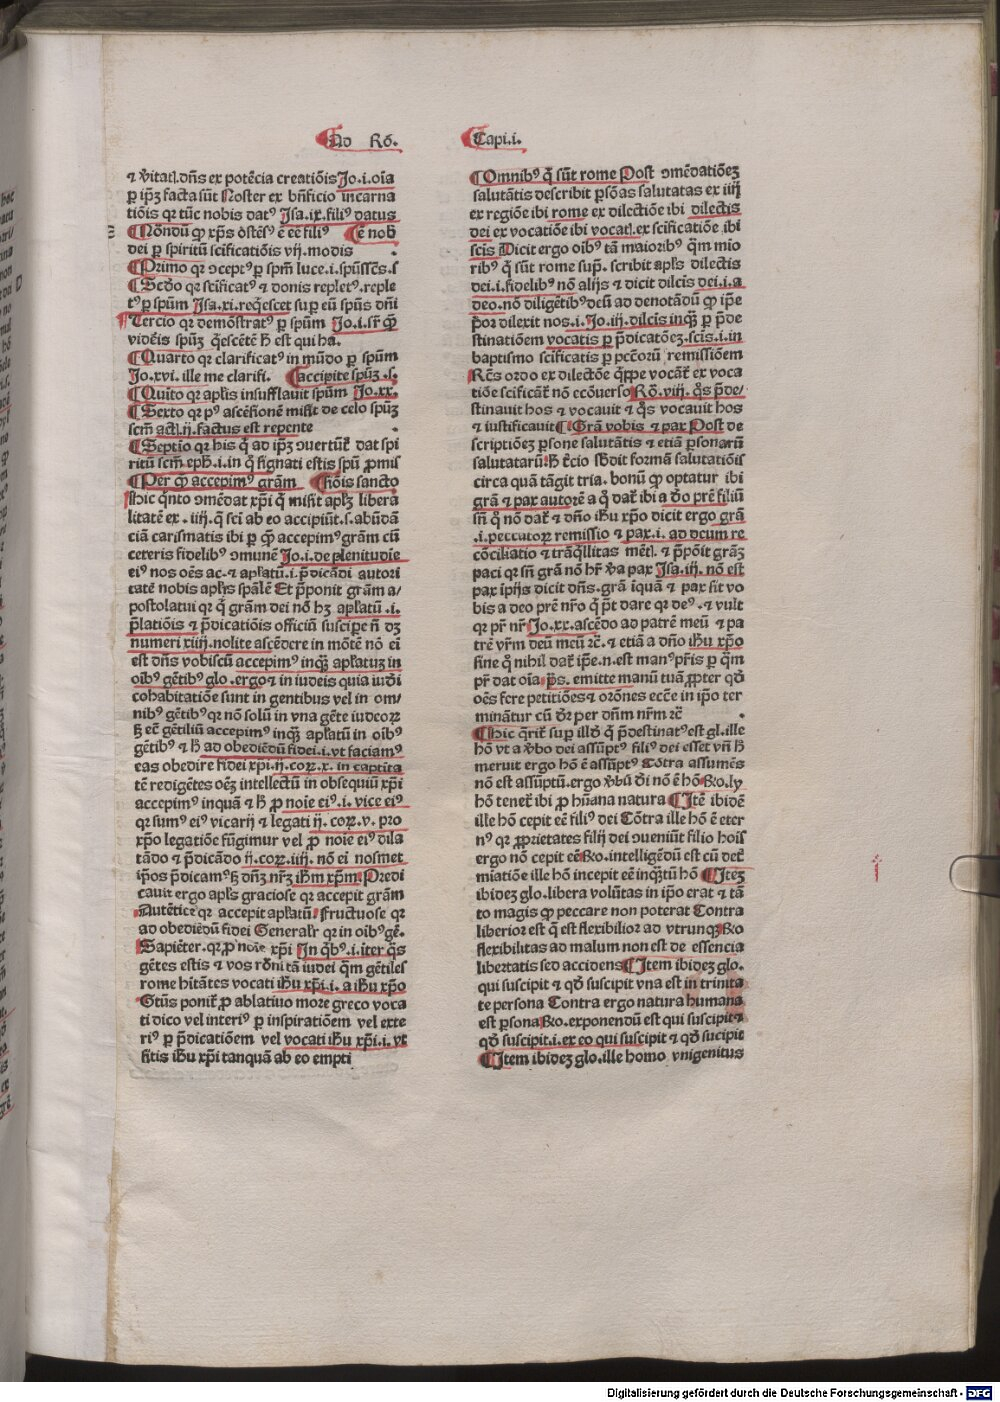 Ad Ro.
Capi.i.
⁊ v̄itatꝭ.dn̄s ex potēcia creatiōis Jo.i.oīa
ꝑ ip̄ꝫ facta sūt Noster ex bn̄ficio incarna
tiōis qꝛ tūc nobis datꝰ Jsa.ix.filiꝰ datus
¶Nōndū ꝙ xp̄s ostēsꝰ ē eē filiꝰ ¶ē nob̄
dei ꝑ spiritū sc̄ificatiōis vij.modis
¶Primo qꝛ ɔceptꝰ ꝑ spm̄ luce.i.spūssc̄s.s
¶Sc̄do qꝛ sc̄ificatꝰ ⁊ donis repletꝰ.reple
tꝰ ꝑ spūm Jsa.xi.reqͥescet suꝑ eū spūs dn̄i
¶Tercio qꝛ demōstratꝰ ꝑ spūm Jo.i.sr̄ ꝙ̄
vidēis spūꝫ qͥescētē h̄ est qui ba.
¶Quarto qꝛ clarificatꝰ in mūdo ꝑ spūm
Jo.xvi.ille me clarifi. ¶accipite spūꝫ.s.
¶Quīto qꝛ apl̄is insufflauit spūm Jo.xx.
¶Sexto qꝛ pꝰ ascēsionē misit de celo spūꝫ
scm̄ actꝭ.ij.factus est repente
¶Septīo qꝛ his q̄ ad ip̄ꝫ ɔuertūt̄ dat spi
ritū scm̄ eph̄.i.in qͦ signati estis spū ꝓmis
¶Per ꝙ accepimꝰ grām ¶hōis sancto
Hic qͥnto ɔmēdat xp̄i qͥ misit apl̄ꝫ libera
litatē ex.iiij.qͥ sc̄i ab eo accipiūt.s.abūdā
ciā carismatis ibi ꝑ ꝙ accepimꝰ grām cū
ceteris fidelibꝰ ɔmunē Jo.i.de plenitudīe
eiꝰ nos oēs ac.⁊ apl̄atū.i.p̄dicādi autori
tatē nobis apl̄is spālē Et p̄ponit grām a/
postolatui qꝛ qͥ grām dei nō hꝫ apl̄atū.i.
p̄latiōis ⁊ p̄dicatiōis officiū suscipe n̄ dꝫ
numeri xiiij.nolite ascēdere in mōtē nō ei
est dn̄s vobiscū accepimꝰ inqͣꝫ apl̄atuꝫ in
oībꝰ gētibꝰ glo.ergo ⁊ in iudeis quia iud̄i
cohabitatiōē sunt in gentibus vel in om/
nibꝰ gētibꝰ qꝛ nō solū in vna gēte iudeoꝝ
sꝫ ec̄ gētiliū accepimꝰ inqͣꝫ apl̄atū in oībꝰ
gētibꝰ ⁊ h̄ ad obediēdū fidei.i.vt faciamꝰ
eas obedire fidei xp̄i.ij.coꝝ.x. in captīta
tē redigētes oēꝫ intellectū in obsequiū xp̄i
accepimꝰ inquā ⁊ h̄ ꝓ noīe eiꝰ.i.vice eiꝰ
qꝛ sumꝰ eiꝰ vicarij ⁊ legati ij.coꝝ.v. pro
xp̄o legatiōe fūgimur vel ꝓ noīe eiꝰ dila
tādo ⁊ p̄dicādo ij.coꝝ.iiij. nō ei nosmet
ip̄os p̄dicamꝰ sꝫ dn̄ꝫ nr̄ꝫ ih̄m xp̄m.Predi
cauit ergo apl̄s graciose qꝛ accepit grām
Autētice qꝛ accepit apl̄atū Fructuose qꝛ
ad obediēdū fidei Generalr̄ qꝛ in oībꝰ gē.
Sapiēter.qꝛ ꝓ noīe xp̄i Jn qͥbꝰ.i.iter qͦs
gētes estis ⁊ vos rōni tā iudei qͣm gētiles
rome hitātes vocati ih̄u xp̄i.i.a ih̄u xp̄o
Gtūs poniꝉ ꝓ ablatiuo more greco voca
ti dico vel interiꝰ ꝑ inspiratiōem vel exte
riꝰ ꝑ p̄dicatiōem vel vocati ih̄u xp̄i.i.vt
sitis ih̄u xp̄i tanquā ab eo empti
¶Omnibꝰ qͥ sūt rome Post ɔmēdatiōeꝫ
salutātis describit ꝑsōas salutatas ex iiij
ex regiōe ibi rome ex dilectiōe ibi dilectis
dei ex vocatiōe ibi vocatꝭ.ex sc̄ificatiōe ibi
sc̄is Dicit ergo oībꝰ tā maioribꝰ qͣm mio
ribꝰ qͥ sūt rome sup̄. scribit apl̄s dilectis
dei.i.fidelibꝰ nō alijs ⁊ dicit dilc̄is dei.i.a
deo.nō diligētibꝰ deū ad denotādū ꝙ ip̄e
p̄or dilexit nos.i.Jo.iij.dilcis inqͣꝫ ꝑ p̄de
stinatiōem vocatis ꝑ p̄dicatōeꝫ.sc̄is.i.in
baptismo sc̄ificatis ꝑ pc̄cōrū remissiōem
Rc̄s ordo ex dilectōe qͥppe vocāt̄ ex voca
tiōe sc̄ificāt̄ nō ecōuerso Rō.viij. qͦs p̄de/
stinauit hos ⁊ vocauit ⁊ qͦs vocauit hos
⁊ iustificauit ¶Grā vobis ⁊ pax Post de
scriptiōeꝫ ꝑsone salutātis ⁊ etiā ꝑsonarū
salutatarū h̄ tc̄io sb̄dit formā salutatiōis
circa quā tāgit tria. bonū ꝙ optatur ibi
grā ⁊ pax autorē a qͦ dat̄ ibi a d̄o prē filiū
sn̄ qͦ nō dat̄ ⁊ dn̄o ih̄u xp̄o dicit ergo grā
.i.peccatoꝝ remissio ⁊ pax.i. ad deum re
cōciliatio ⁊ trāqͥllitas mētꝭ.⁊ p̄pōit grāꝫ
paci qꝛ sn̄ grā nō hr̄ v̄a pax Jsa.iij. nō est
pax īpijs dicit dn̄s.grā īquā ⁊ pax sit vo
bis a deo prē nr̄o qͥ p̄t dare qꝛ deꝰ.⁊ vult
qꝛ pr̄ nr̄ Jo.xx.ascēdo ad patrē meū ⁊ pa
trē vr̄m deū meū ⁊c̄.⁊ etiā a dn̄o ih̄u xp̄o
sine qͦ nihil dat̄ ip̄e.n.est manꝰ pr̄is ꝑ qͣm
pr̄ dat oīa p̄s. emitte manū tuā ꝓpter qd̄
oēs fere petitiōes ⁊ orōnes ecc̄e in ip̄o ter
minātur cū dr̄ per dn̄m nr̄m ⁊c̄
¶Hic qͥrit̄ suꝑ illd̄ qͥ p̄destinatꝰ est gl.ille
hō vt a v̄bo dei assūptꝰ filiꝰ dei esset vn̄ h̄
meruit ergo hō ē assūptꝰ Cōtra assumēs
nō est assūptū.ergo v̄bū di nō ē hō Ro.ly
hō tenet̄ ibi ꝓ hūana natura ¶Jtē ibidē
ille hō cepit eē filiꝰ dei Cōtra ille hō ē eter
nꝰ qꝛ ꝓprietates filij dei ɔueniūt filio hois
ergo nō cepit eē Ro.intelligēdū est cū det̄
miatiōe ille hō incepit eē inqͣtū hō ¶Jteꝫ
ibideꝫ glo.libera volūtas in ip̄o erat ⁊ tā
to magis ꝙ peccare non poterat Contra
liberior est qͥ est flexibilior ad vtrunqꝫ Ro
flexibilitas ad malum non est de essencia
libertatis sed accidens ¶Jtem ibideꝫ glo.
qui suscipit ⁊ qd̄ suscipit vna est in trinita
te persona Contra ergo natura humana
est ꝑsona Ro.exponendū est qui suscipit ⁊
qd̄ suscipit.i.ex eo qui suscipit ⁊ qd̄ sucipit
¶Jtem ibideꝫ glo.ille homo vnigenitus
Digitalisierung gefördert durch die Deutsche Forschungsgemeinschaft - DFG